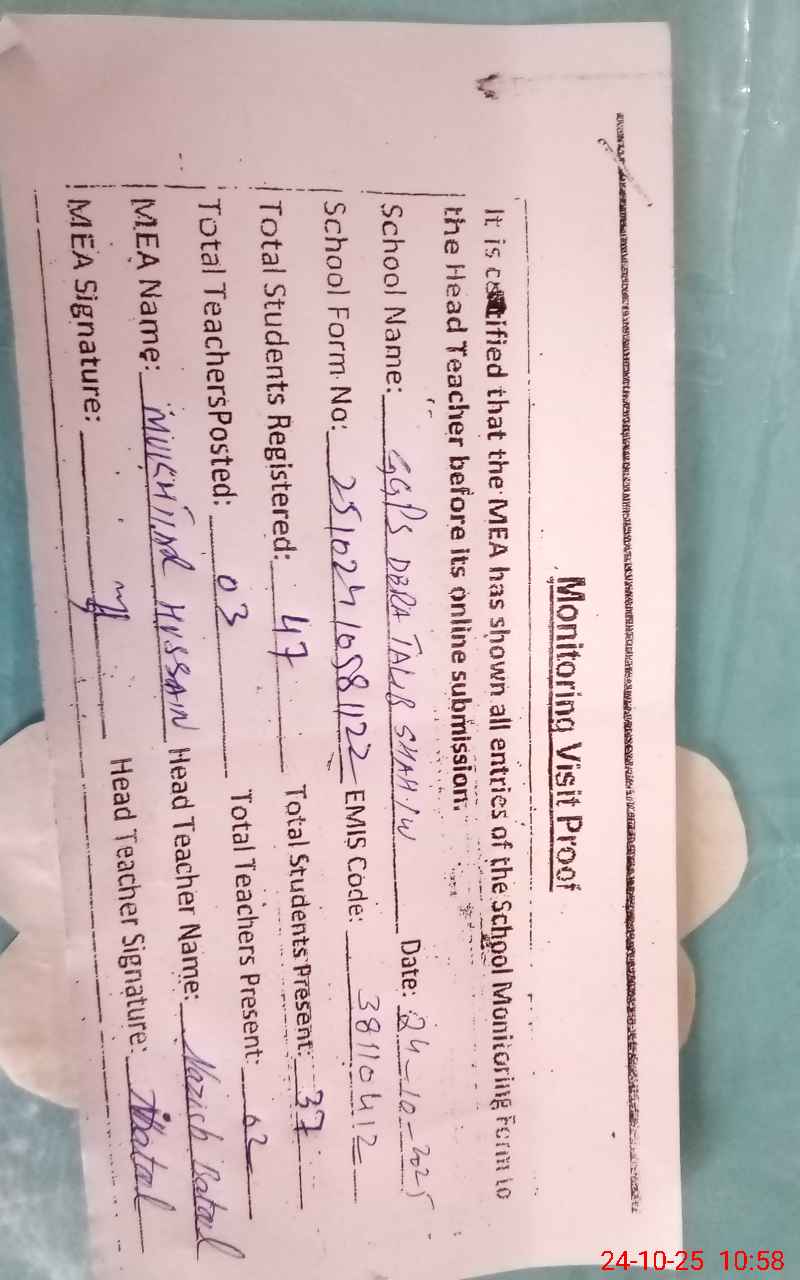 Monitoring Visit Proof
It is certified that the MEA has shown all entries of the School Monitoring Form to
the Head Teacher before its online submission.
School Name: GGPS DERA TALIB SHAH Date: 24-10-2025
School Form No: 25102410581122 EMIS Code: 38110412
Total Students Registered: 47 Total Students Present: 37
Total TeachersPosted: 03 Total Teachers Present: 02
MEA Name: HUSSAIN Head Teacher Name: Nazish Batool
MEA Signature: Head Teacher Signature:
24-10-25 10:58